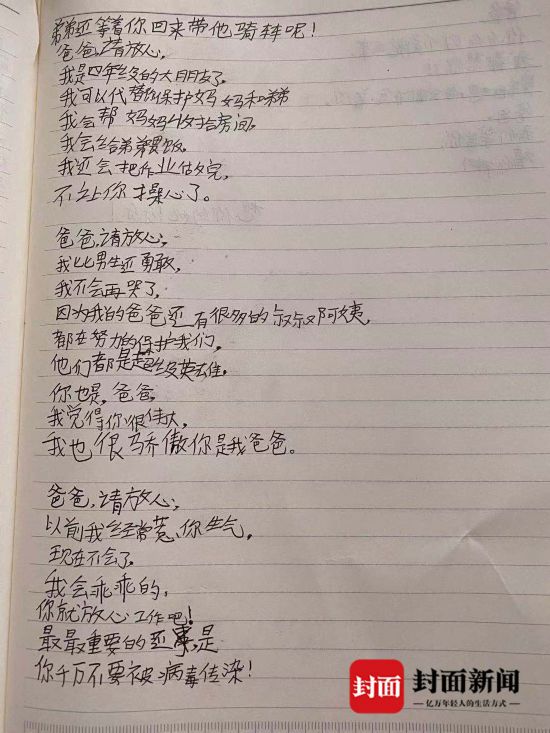 弟弟还等着你回来带他骑车呢！
爸爸，请放心，
我是四年级的大朋友了，
我可以代替你保护妈妈和弟弟
我会帮妈妈收拾房间，
我会给弟弟煮饭，
我还会把作业做完，
不让你操心了。
爸爸，请放心，
我比男生还勇敢，
我不会再哭了，
因为我的爸爸还有很多的叔叔阿姨，
都在努力的保护我们，
他们都是超级英雄。
你也是，爸爸，
我觉得你很伟大，
我也很骄傲你是我爸爸。
爸爸，请放心，
以前我经常惹你生气，
现在不会了，
我会乖乖的，
你就放心工作吧！
最最重要的还是
你千万不要被病毒传染！
封面 封面新闻
亿万年轻人的生活方式